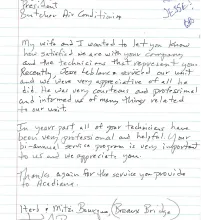 President
Butcher Air Conditioning
My wife and I wanted to let you know
how satisfied we are with your company
and the technicians that represent you.
Recently, Jesse serviced our unit
and we were very appreciative of all he
did. He was very courteous and professional
and informed us of many things related
to our unit.
In years past all of your technicians have
been very professional and helpful. Your
bi-annual service program is very important
to us and we appreciate you.
Thanks again for the service you provide
to Acadiana.
Herb & Mitzi (Breaux Bridge)